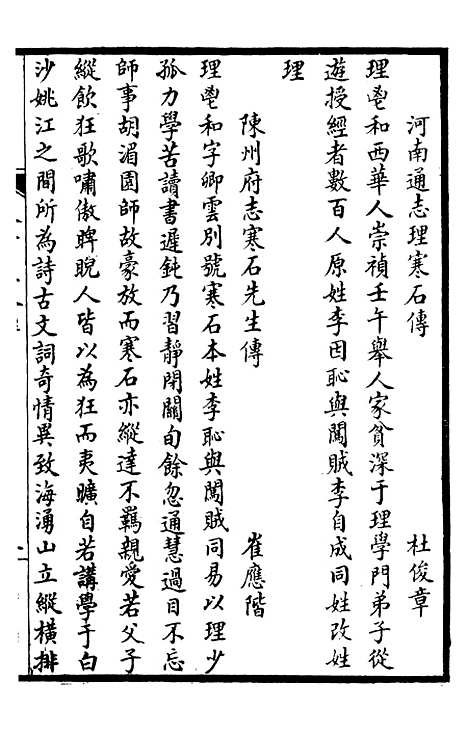 河南通志理寒石傳　杜俊章
理鬯和西華人崇禎壬午舉人家貧深于理學門弟子從
遊授經者數百人原姓李因恥與闖賊李自成同姓改姓
理
陳州府志寒石先生傳　崔應階
理鬯和字卿雲別號寒石本姓李恥與闖賊同易以理少
孤力學苦讀書遲鈍乃習靜閉關旬餘忽通慧過目不忘
師事胡湄園師故豪放而寒石亦縱達不羈親愛若父子
縱飲狂歌嘯傲睥睨人皆以為狂而夷曠自若講學于白
沙姚江之間所為詩古文詞奇情異致海湧山立縱橫排